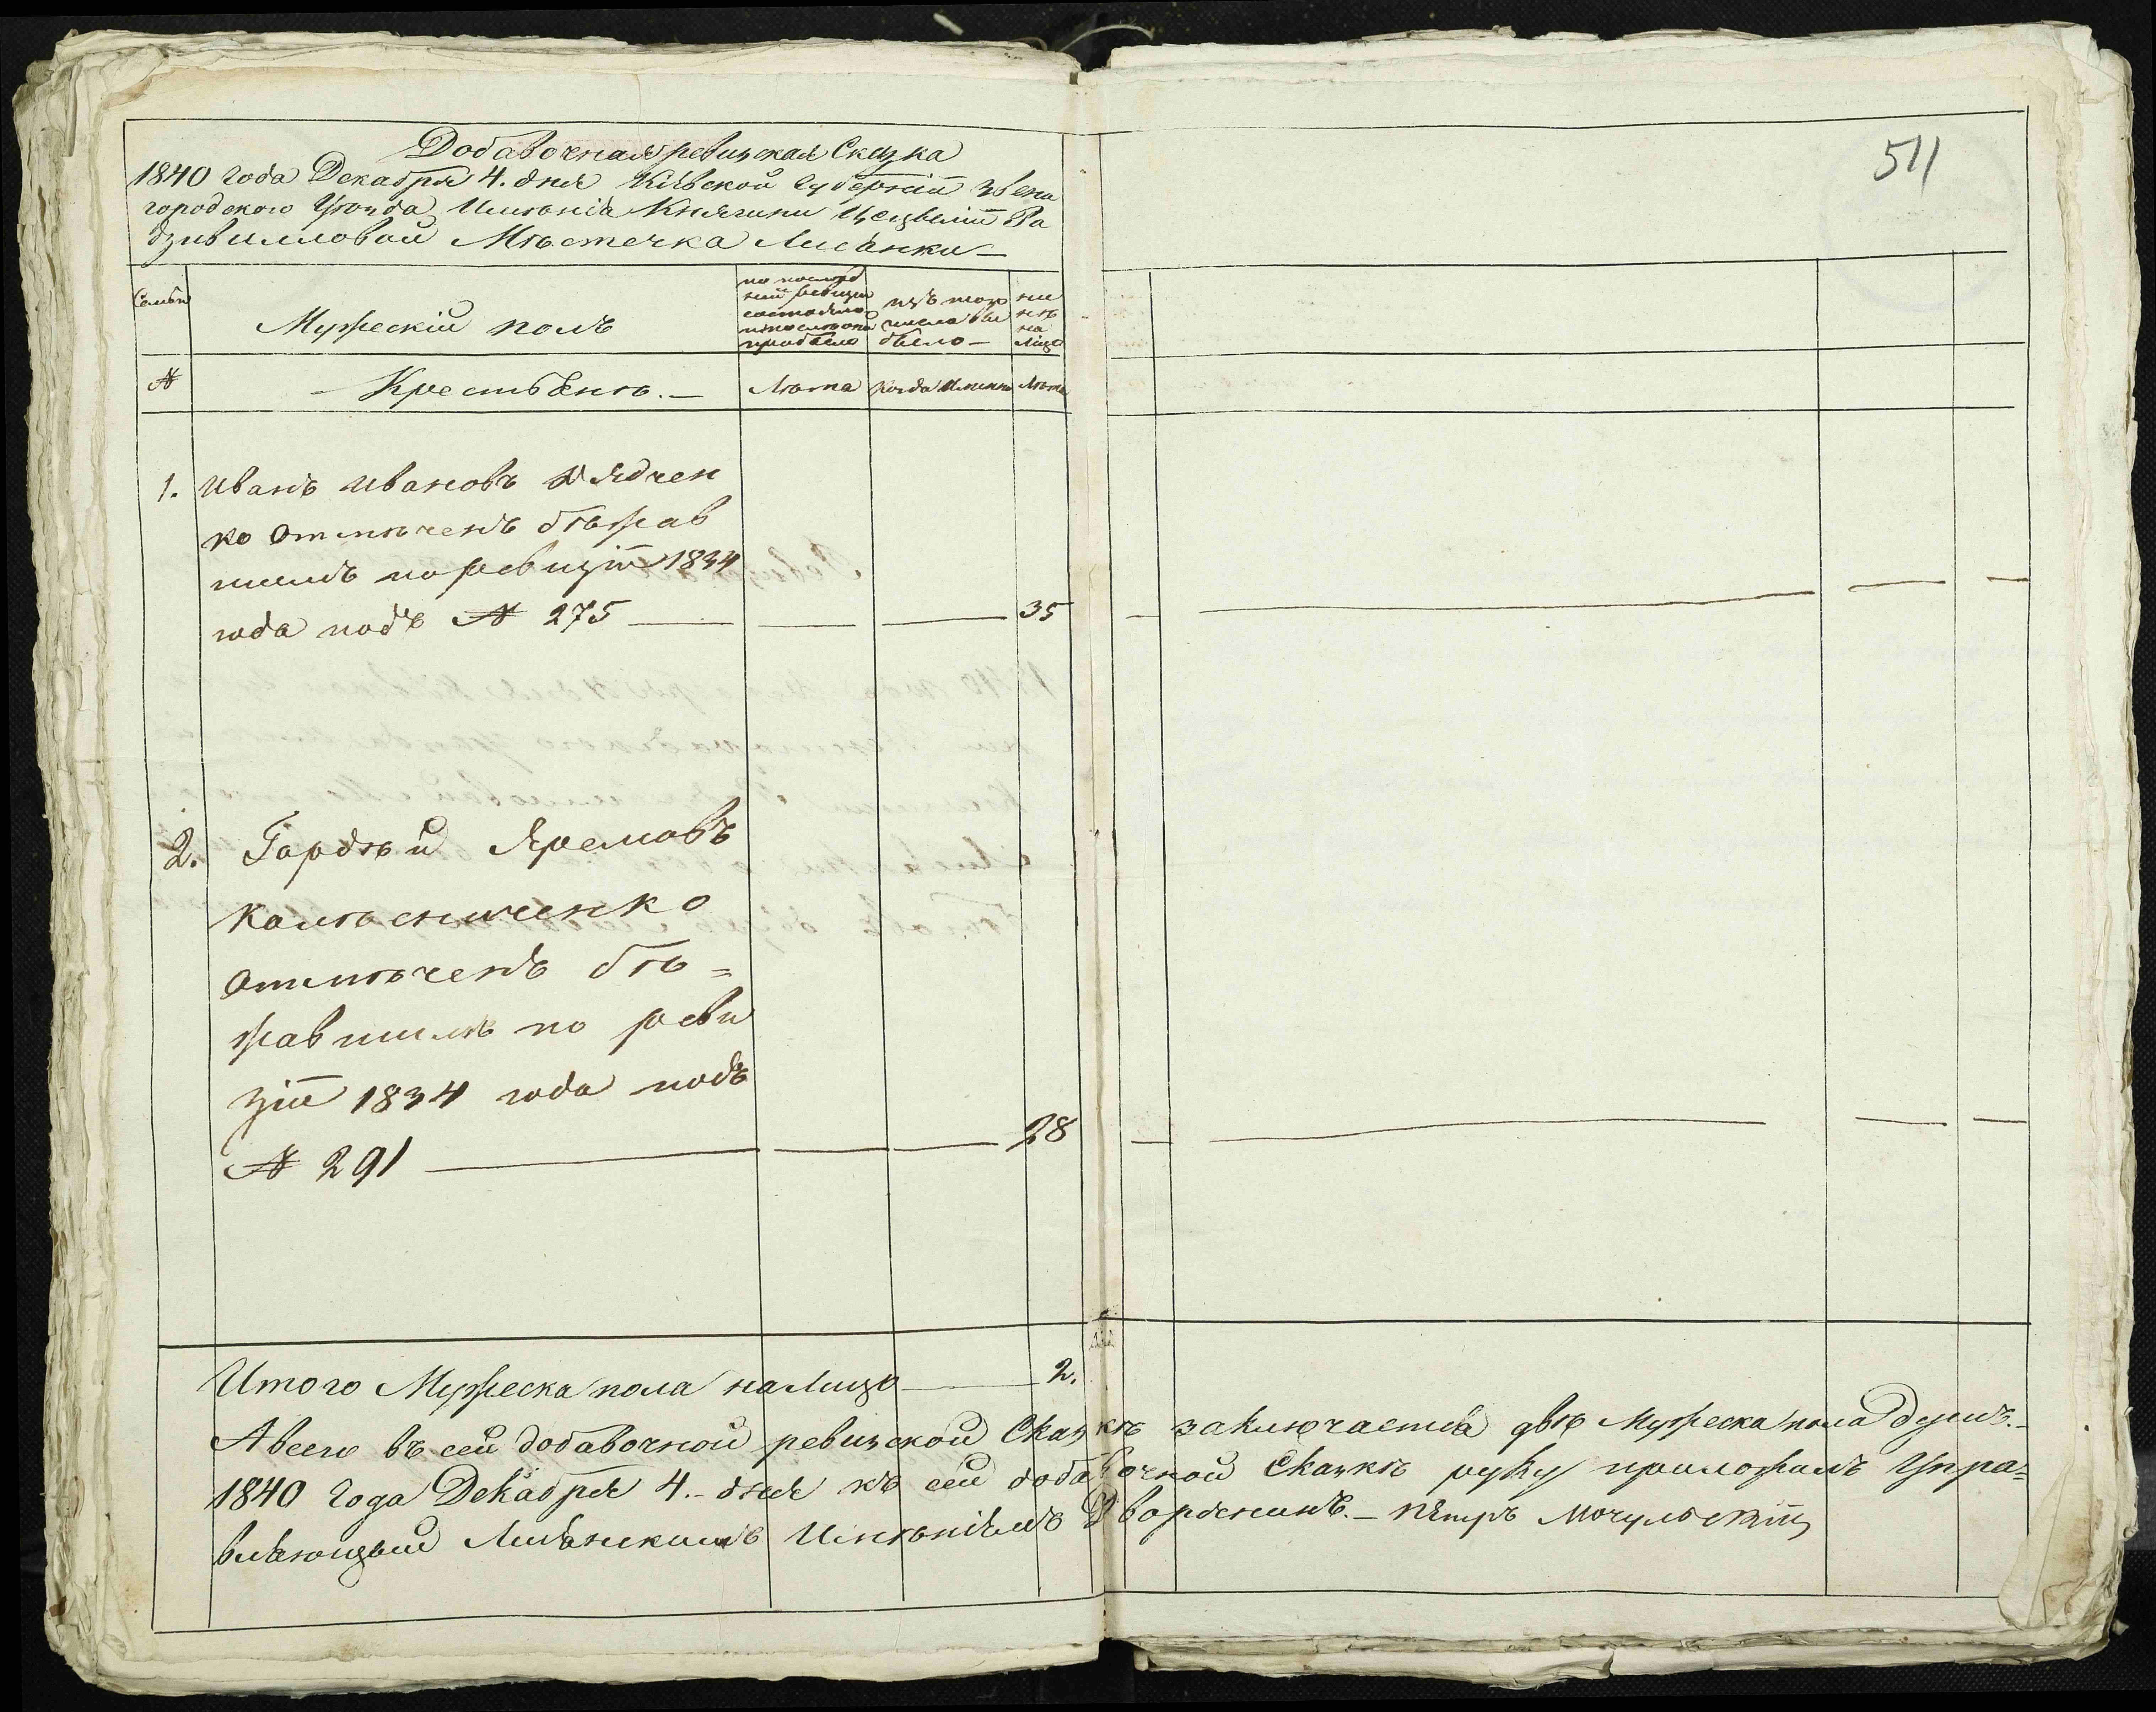 511
Добавочная ревизская Сказка
1840 года Декабря 4. дня Кіевской Губерніи Звени
городского Уѣзда Имѣнія Княгини Ра
дзивилловой Мѣстечка Лисянки —
Семьи
Мужескій полъ
по послѣд
ней ревизіи
состояло
и послѣ оной
прибыло
изъ того
числа вы
было —
ны
нѣ
на
лицо
№
— Крестьянъ. —
Лѣта
Когда Именно
Лѣта
1. Иванъ Ивановъ Дядчен
ко Отмѣченъ бѣжав
шимъ по ревизіи 1834
года подъ № 275 — — — 35 — — — —
2. Гордѣй Яремовъ
Колѣсниченко
Отмѣченъ бѣ=
жавшимъ по реви
зіи 1834 года подъ
№ 291 — — — 28 — — — —
Итого Мужеска пола на Лицо — 2.
А всего въ сей добавочной ревизской Сказкѣ заключается двѣ Мужеска пола Душъ. —
1840 Года Декабря 4. – дня къ сей добавочной Сказкѣ руку приложилъ Упра=
вляющый Лисянскимъ Имѣніемъ Дворянинъ. — Пётръ Мочульскій